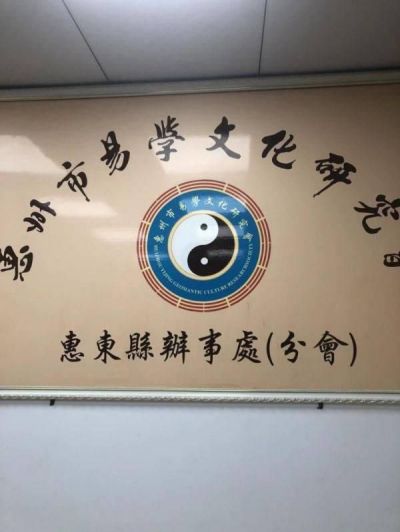 惠州市易學文化研究會
惠州市易學文化研究會
HUIZHOU YIJING GEOMANTIC CULTURE RESEARCH SOCIETY
惠東縣辦事處(分會)